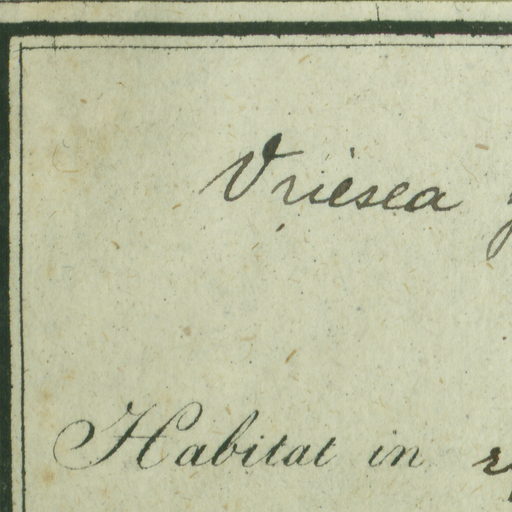 Vriesea
Habitat in